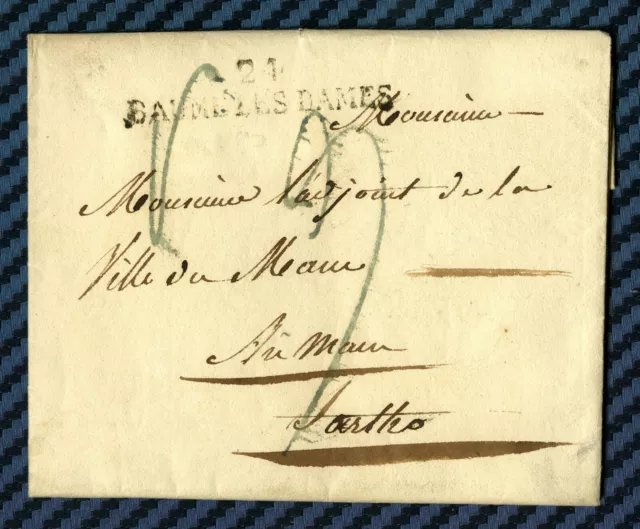 24
BAUME-LES-DAMES
Monsieur
Monsieur l'adjoint de la
Ville du Mans
Au mans
Sarthe